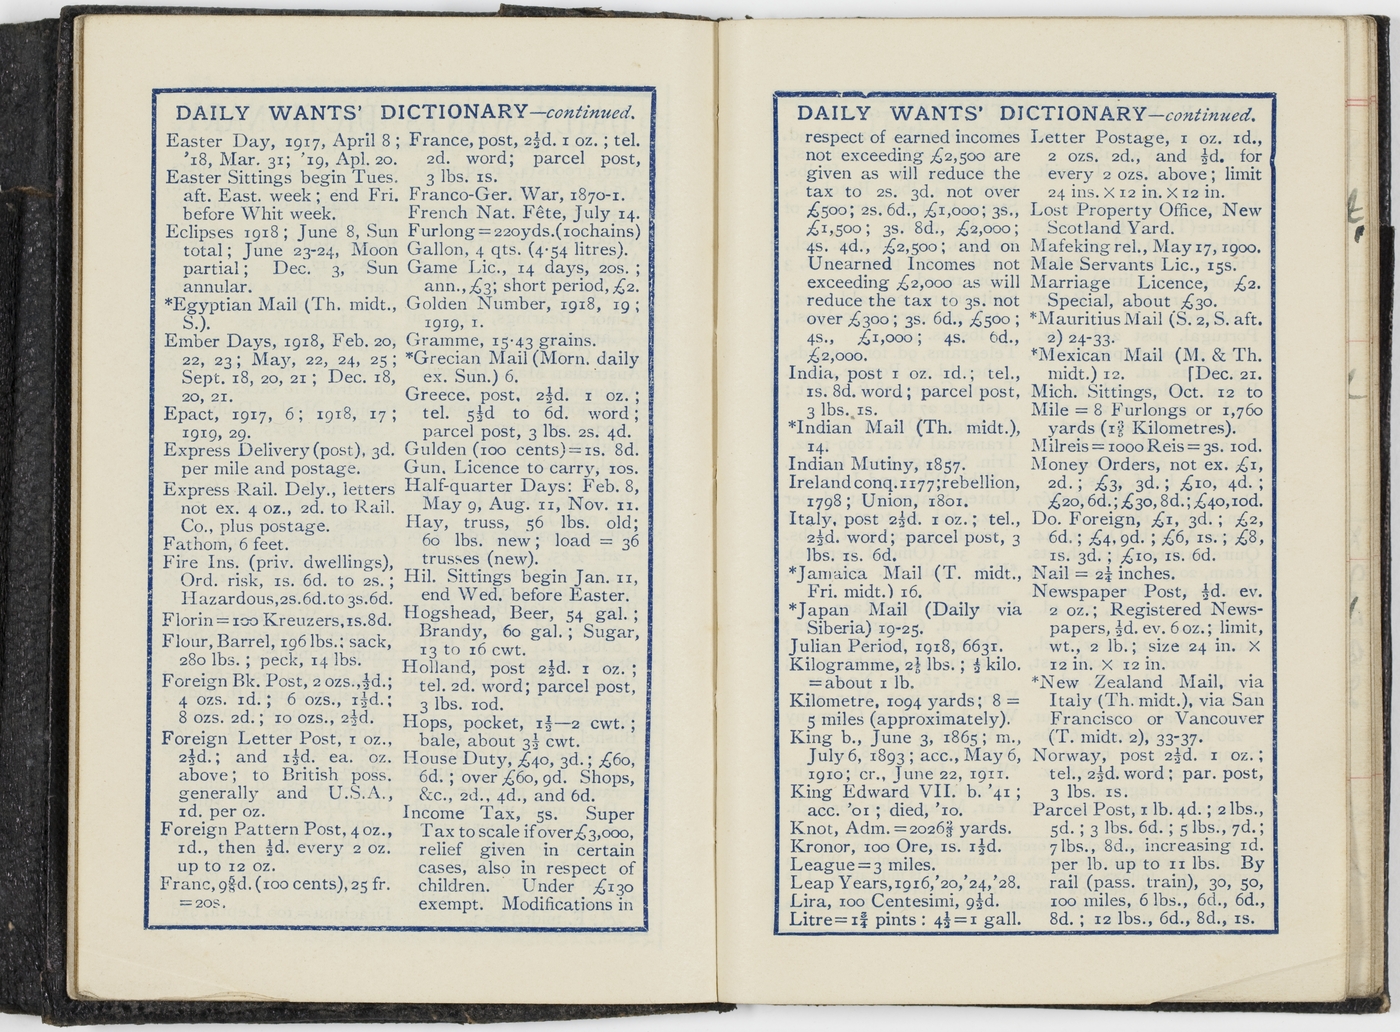 DAILY WANTS' DICTIONARY—continued.
Easter Day, 1917, April 8;
'18, Mar. 31; '19, Apl. 20.
Easter Sittings begin Tues.
aft. East. week; end Fri.
before Whit week.
Eclipses 1918; June 8, Sun
total; June 23-24, Moon
partial; Dec. 3, Sun
annular.
*Egyptian Mail (Th. midt.,
S.).
Ember Days, 1918, Feb. 20,
22, 23; May, 22, 24, 25;
Sept. 18, 20, 21; Dec. 18,
20, 21.
Epact, 1917, 6; 1918, 17;
1919, 29.
Express Delivery (post), 3d.
per mile and postage.
Express Rail. Dely., letters
not ex. 4 oz., 2d. to Rail.
Co., plus postage.
Fathom, 6 feet.
Fire Ins. (priv. dwellings),
Ord. risk, 1s. 6d. to 2s.;
Hazardous, 2s. 6d. to 3s. 6d.
Florin = 100 Kreuzers, 1s. 8d.
Flour, Barrel, 196 lbs.: sack,
280 lbs.; peck, 14 lbs.
Foreign Bk. Post, 2 ozs., ½d.;
4 ozs. 1d.; 6 ozs., 1½d.;
8 ozs. 2d.; 10 ozs., 2½d.
Foreign Letter Post, 1 oz.,
2½d.; and 1½d. ea. oz.
above; to British poss.
generally and U.S.A.,
1d. per oz.
Foreign Pattern Post, 4 oz.,
1d., then ½d. every 2 oz.
up to 12 oz.
Franc, 9⅝d. (100 cents), 25 fr.
= 20s.
France, post, 2½d. 1 oz.; tel.
2d. word; parcel post,
3 lbs. 1s.
Franco-Ger. War, 1870-1.
French Nat. Fête, July 14.
Furlong = 220 yds. (10 chains)
Gallon, 4 qts. (4·54 litres).
Game Lic., 14 days, 20s.;
ann., £3; short period, £2.
Golden Number, 1918, 19;
1919, 1.
Gramme, 15·43 grains.
*Grecian Mail (Morn. daily
ex. Sun.) 6.
Greece, post, 2½d. 1 oz.;
tel. 5½d to 6d. word;
parcel post, 3 lbs. 2s. 4d.
Gulden (100 cents) = 1s. 8d.
Gun. Licence to carry, 10s.
Half-quarter Days: Feb. 8,
May 9, Aug. 11, Nov. 11.
Hay, truss, 56 lbs. old;
60 lbs. new; load = 36
trusses (new).
Hil. Sittings begin Jan. 11,
end Wed. before Easter.
Hogshead, Beer, 54 gal.;
Brandy, 60 gal.; Sugar,
13 to 16 cwt.
Holland, post 2½d. 1 oz.;
tel. 2d. word; parcel post,
3 lbs. 10d.
Hops, pocket, 1½—2 cwt.;
bale, about 3½ cwt.
House Duty, £40, 3d.; £60,
6d.; over £60, 9d. Shops,
&c., 2d., 4d., and 6d.
Income Tax, 5s. Super
Tax to scale if over £3,000,
relief given in certain
cases, also in respect of
children. Under £130
exempt. Modifications in
DAILY WANTS' DICTIONARY—continued.
respect of earned incomes
not exceeding £2,500 are
given as will reduce the
tax to 2s. 3d. not over
£500; 2s. 6d., £1,000; 3s.,
£1,500; 3s. 8d., £2,000;
4s. 4d., £2,500; and on
Unearned Incomes not
exceeding £2,000 as will
reduce the tax to 3s. not
over £300; 3s. 6d., £500;
4s., £1,000; 4s. 6d.,
£2,000.
India, post 1 oz. 1d.; tel.,
1s. 8d. word; parcel post,
3 lbs. 1s.
*Indian Mail (Th. midt.),
14.
Indian Mutiny, 1857.
Ireland conq. 1177; rebellion,
1798; Union, 1801.
Italy, post 2½d. 1 oz.; tel.,
2½d. word; parcel post, 3
lbs. 1s. 6d.
*Jamaica Mail (T. midt.,
Fri. midt.) 16.
*Japan Mail (Daily via
Siberia) 19-25.
Julian Period, 1918, 6631.
Kilogramme, 2⅕ lbs.; ½ kilo.
= about 1 lb.
Kilometre, 1094 yards; 8 =
5 miles (approximately).
King b., June 3, 1865; m.,
July 6, 1893; acc., May 6,
1910; cr., June 22, 1911.
King Edward VII. b. '41;
acc. '01; died, '10.
Knot, Adm. = 2026⅔ yards.
Kronor, 100 Ore, 1s. 1½d.
League = 3 miles.
Leap Years, 1916, '20, '24, '28.
Lira, 100 Centesimi, 9½d.
Litre = 1¾ pints: 4½ = 1 gall.
Letter Postage, 1 oz. 1d.,
2 ozs. 2d., and ½d. for
every 2 ozs. above; limit
24 ins. × 12 in. × 12 in.
Lost Property Office, New
Scotland Yard.
Mafeking rel., May 17, 1900.
Male Servants Lic., 15s.
Marriage Licence, £2.
Special, about £30.
*Mauritius Mail (S. 2, S. aft.
2) 24-33.
*Mexican Mail (M. & Th.
midt.) 12. [Dec. 21.
Mich. Sittings, Oct. 12 to
Mile = 8 Furlongs or 1,760
yards (1⅗ Kilometres).
Milreis = 1000 Reis = 3s. 10d.
Money Orders, not ex. £1,
2d.; £3, 3d.; £10, 4d.;
£20, 6d.; £30, 8d.; £40, 10d.
Do. Foreign, £1, 3d.; £2,
6d.; £4, 9d.; £6, 1s.; £8,
1s. 3d.; £10, 1s. 6d.
Nail = 2¼ inches.
Newspaper Post, ½d. ev.
2 oz.; Registered News-
papers, ½d. ev. 6 oz.; limit,
wt., 2 lb.; size 24 in. ×
12 in. × 12 in.
*New Zealand Mail, via
Italy (Th. midt.), via San
Francisco or Vancouver
(T. midt. 2), 33-37.
Norway, post 2½d. 1 oz.;
tel., 2½d. word; par. post,
3 lbs. 1s.
Parcel Post, 1 lb. 4d.; 2 lbs.,
5d.; 3 lbs. 6d.; 5 lbs., 7d.;
7 lbs., 8d., increasing 1d.
per lb. up to 11 lbs. By
rail (pass. train), 30, 50,
100 miles, 6 lbs., 6d., 6d.,
8d.; 12 lbs., 6d., 8d., 1s.